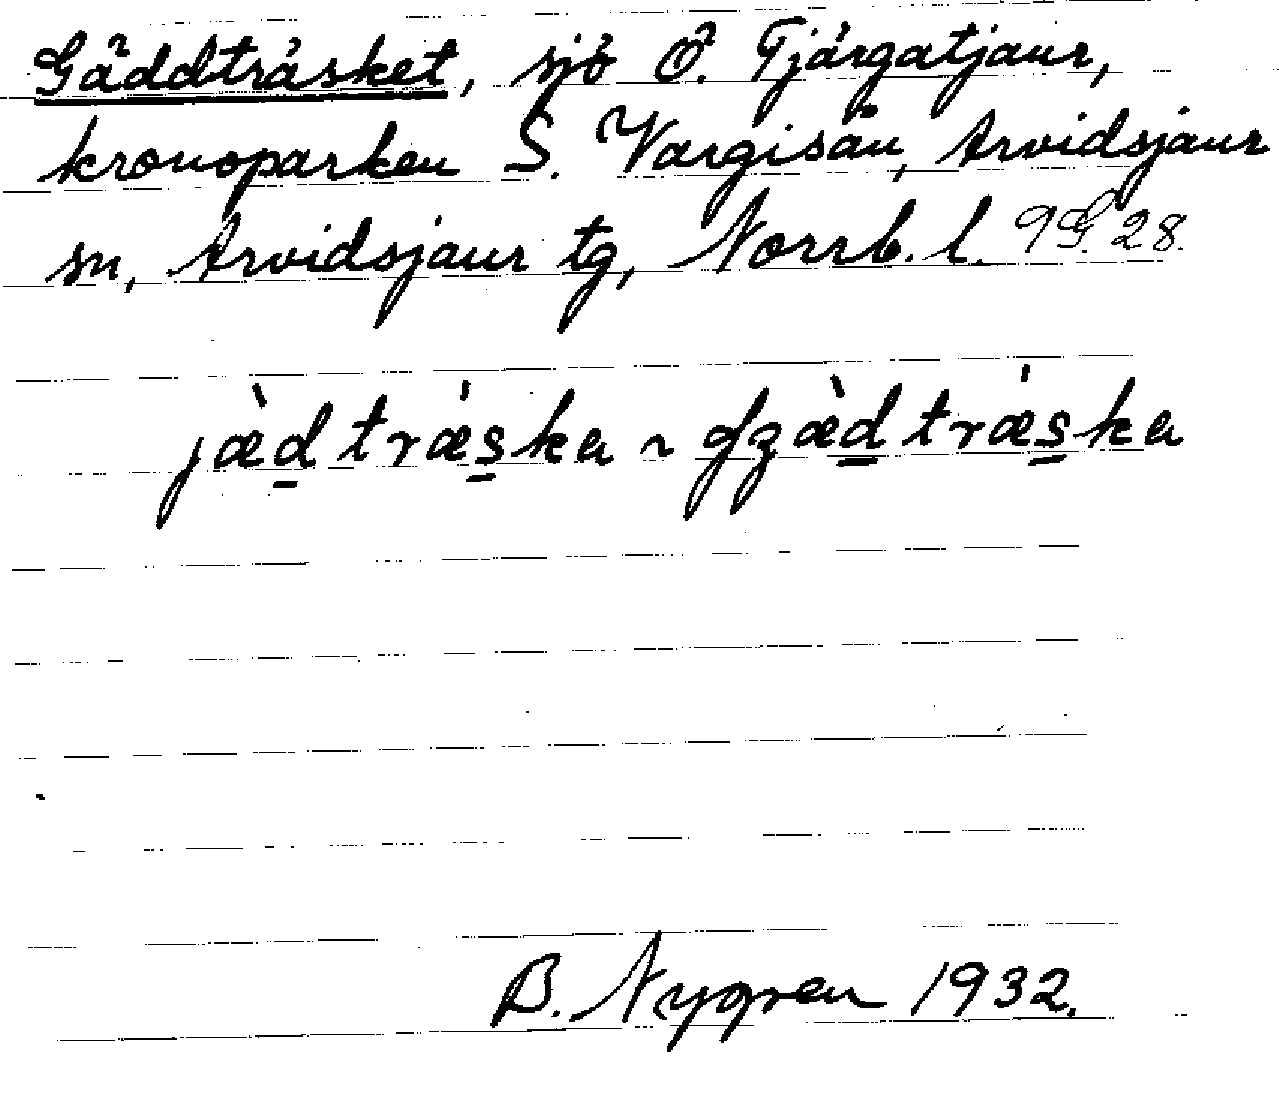 Gäddträsket, sjö Ö. Tjärgatjaur,
kronoparken S. Vargisån, Arvidsjaur
sn, Arvidsjaur tg, Norrb. l. 9G. 28.
jæ̀d̲trǽs̲ka ~ gʒæ̀d̲trǽs̲ka
B. Nygren 1932.